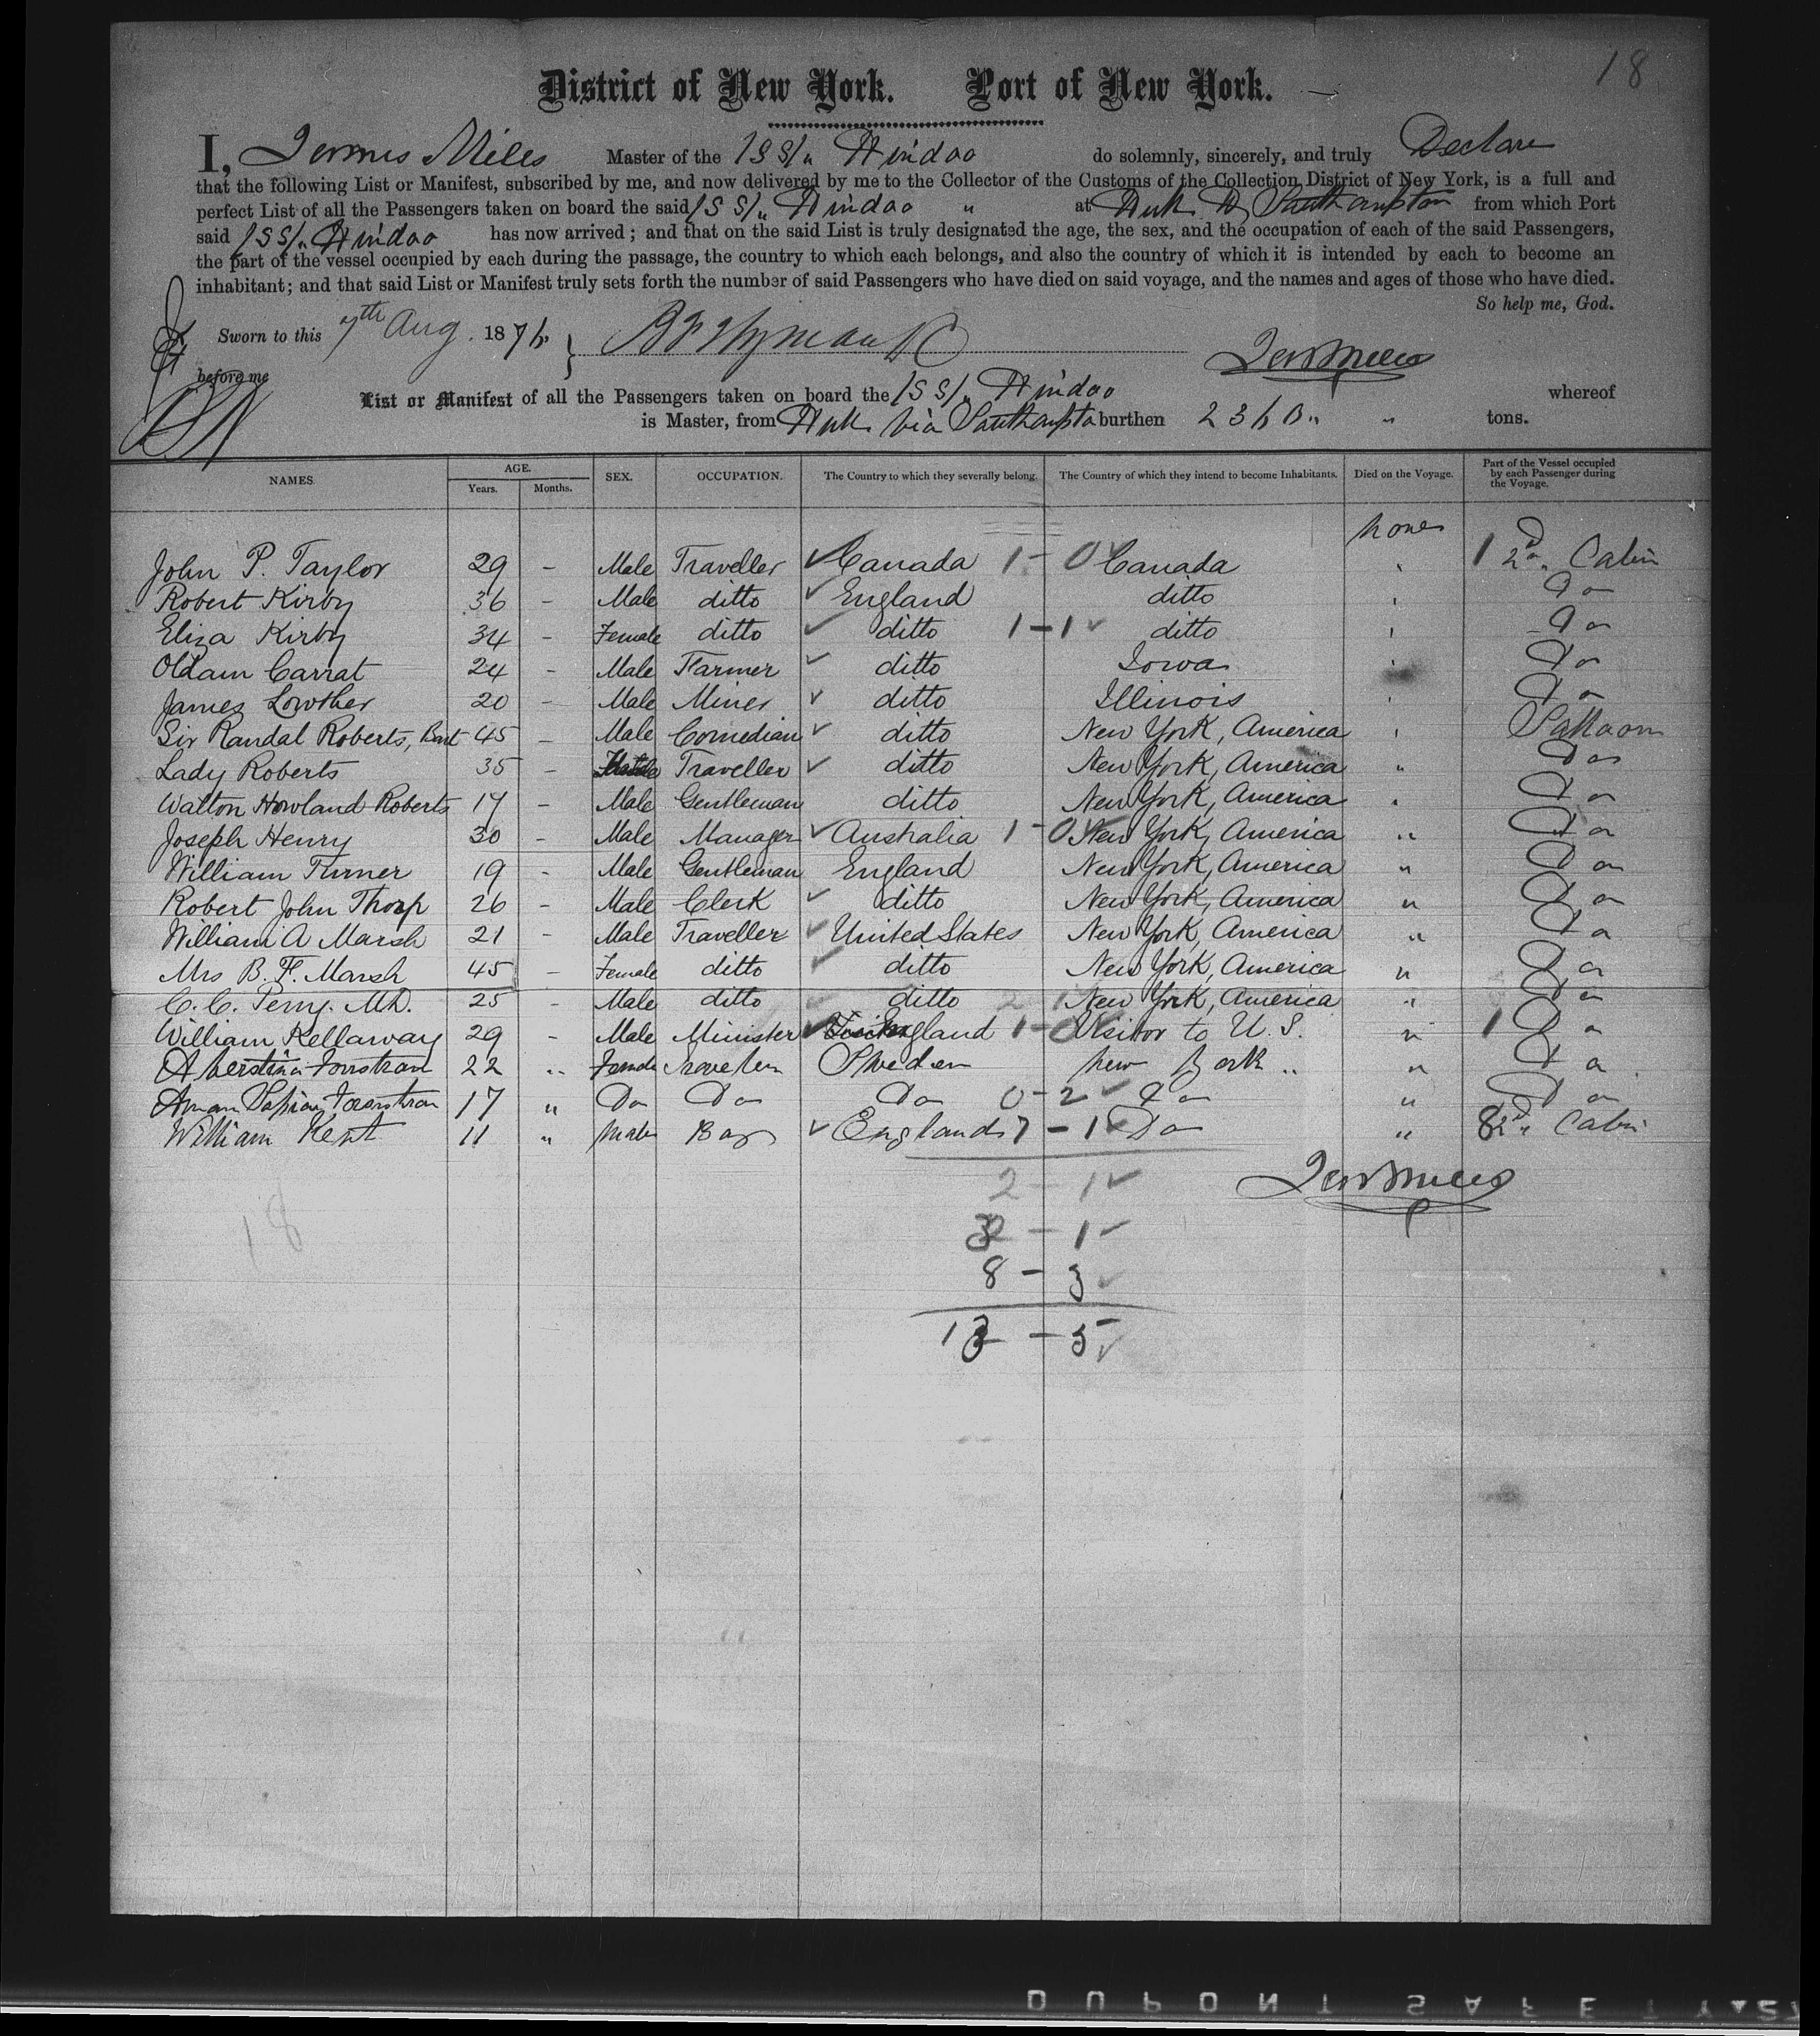 18
District of New York. Port of New York.
I, Jermis Miles Master of the SS/" Hindoo do solemnly, sincerely, and truly Declare
that the following List or Manifest, subscribed by me, and now delivered by me to the Collector of the Customs of the Collection District of New York, is a full and
perfect List of all the Passengers taken on board the said SS/" Hindoo " at Southampton from which Port
said SS/" Hindoo has now arrived; and that on the said List is truly designated the age, the sex, and the occupation of each of the said Passengers,
the part of the vessel occupied by each during the passage, the country to which each belongs, and also the country of which it is intended by each to become an
inhabitant; and that said List or Manifest truly sets forth the number of said Passengers who have died on said voyage, and the names and ages of those who have died.
So help me, God.
Sworn to this 7th Aug. 1876
before me
List or Manifest of all the Passengers taken on board the SS/" Hindoo whereof
is Master, from Hull via Southampton burthen tons.
NAMES. AGE. SEX. OCCUPATION. The Country to which they severally belong. The Country of which they intend to become Inhabitants. Died on the Voyage. Part of the Vessel occupied by each Passenger during the Voyage.
Years. Months.
none
John P. Taylor 29 - Male Traveller Canada 1-0 Canada 1 2d Cabin
Robert Kirby 36 - Male ditto England ditto Do
Eliza Kirby 34 - Female ditto ditto 1-1 ditto Do
Oldam Carrat 24 - Male Farmer ditto Iowa Do
James Lowther 20 - Male Miner ditto Illinois Do
Sir Randal Roberts, Bart 45 - Male Comedian ditto New York, America Saloon
Lady Roberts 35 - Traveller ditto New York, America " Do
Walton Howland Roberts 17 - Male Gentleman ditto New York, America " Do
Joseph Henry 30 - Male Manager Australia 1-0 New York, America " Do
William Turner 19 - Male Gentleman England New York, America " Do
Robert John Thorp 26 - Male Clerk ditto New York, America " Do
William A Marsh 21 - Male Traveller United States New York, America " Do
Mrs B. F. Marsh 45 - Female ditto ditto New York, America " Do
C. C. Perry. M.D. 25 - Male ditto ditto 2 1 New York, America " Do
William Kellaway 29 - Male Minister England 1-0 Visitor to U. S. " 1 Do
22 " Female Traveller Sweden New York " " Do
17 " Do Do Do 0-2 Do " Do
William Kent 11 " Male Boy England 7-1 Do " 8 2d Cabin
2 - 1
3 - 1
8 - 3
13 - 5
18
DUPONT SAFETY